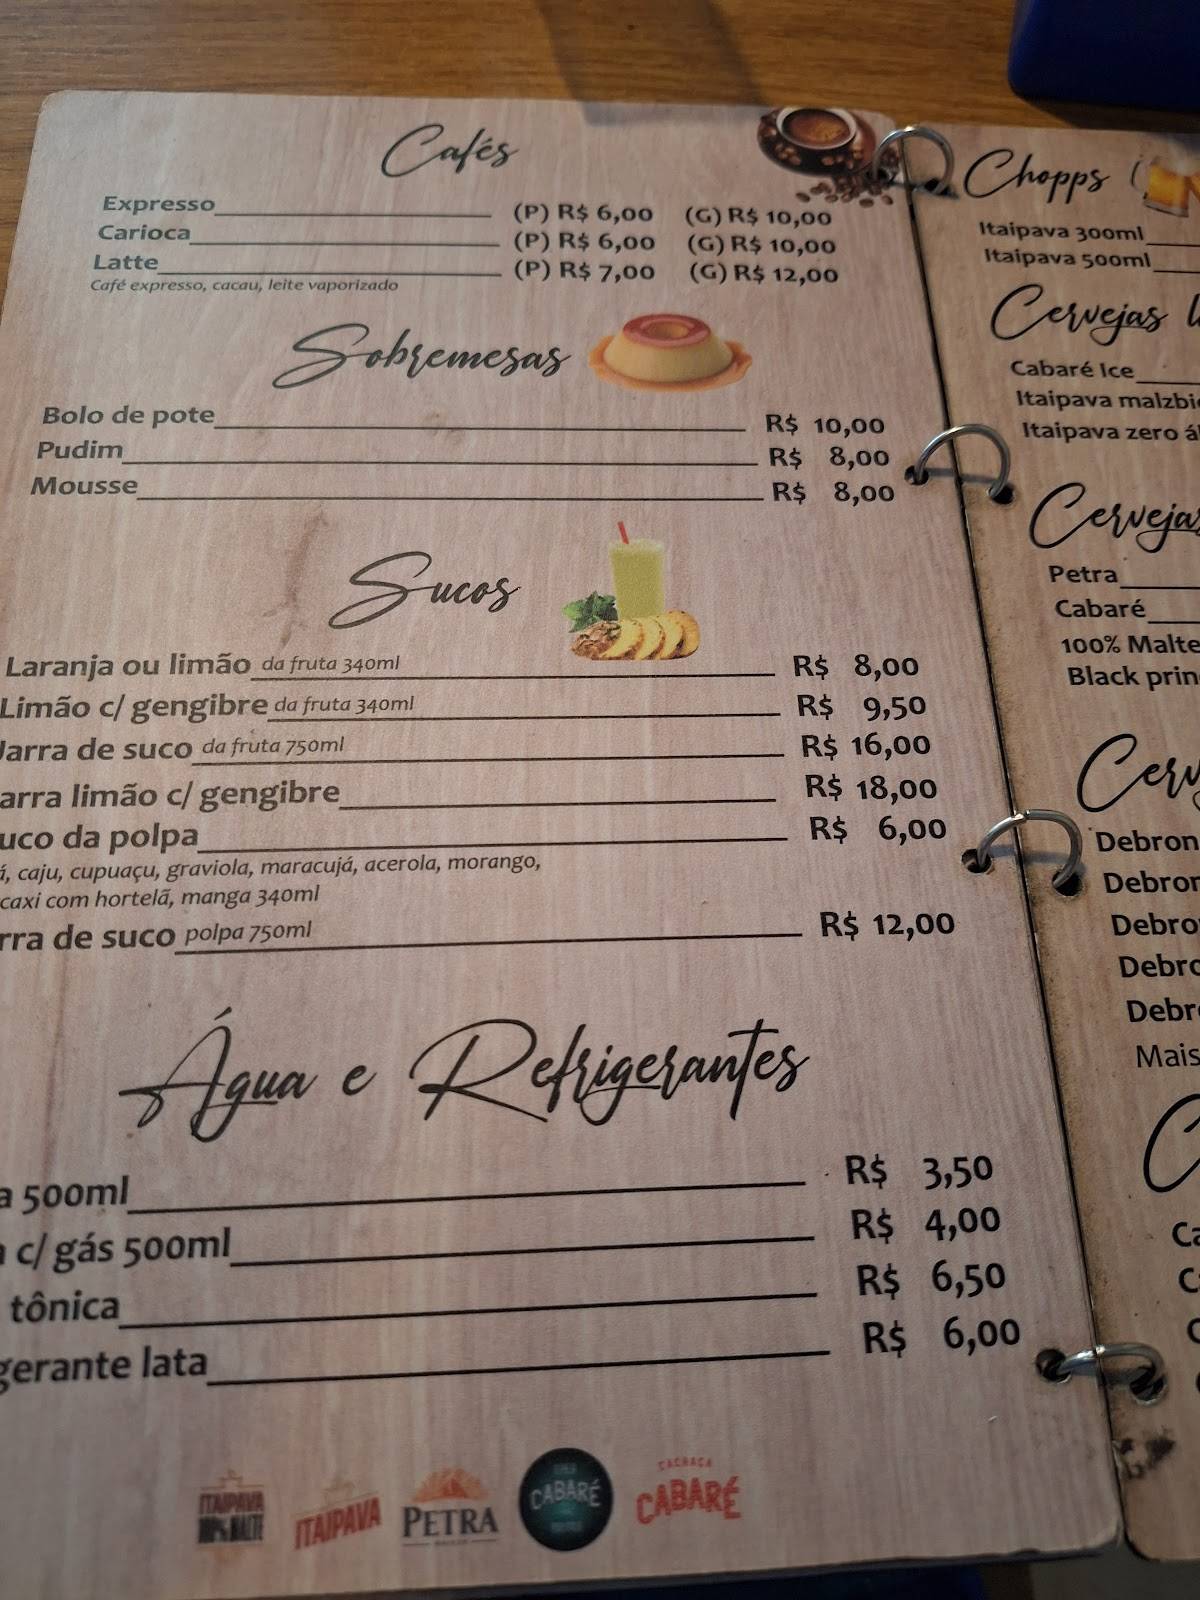 Cafés
Expresso (P) R$ 6,00 (G) R$ 10,00
Carioca (P) R$ 6,00 (G) R$ 10,00
Latte (P) R$ 7,00 (G) R$ 12,00
Café expresso, cacau, leite vaporizado
Sobremesas
Bolo de pote R$ 10,00
Pudim R$ 8,00
Mousse R$ 8,00
Sucos
Laranja ou limão da fruta 340ml R$ 8,00
Limão c/ gengibre da fruta 340ml R$ 9,50
Jarra de suco da fruta 750ml R$ 16,00
arra limão c/ gengibre R$ 18,00
uco da polpa R$ 6,00
caju, cupuaçu, graviola, maracujá, acerola, morango,
caxi com hortelã, manga 340ml
rra de suco polpa 750ml R$ 12,00
Água e Refrigerantes
a 500ml R$ 3,50
c/ gás 500ml R$ 4,00
tônica R$ 6,50
gerante lata R$ 6,00
ITAIPAVA
100% MALTE
ITAIPAVA
PETRA
CABARÉ
CACHAÇA
CABARÉ
Chopps
Itaipava 300ml
Itaipava 500ml
Cervejas
Cabaré Ice
Itaipava malzbi
Itaipava zero
Cervejas
Petra
Cabaré
100% Malte
Black prin
Cerv
Debron
Debron
Debro
Debro
Debr
Mais
C
Ca
C